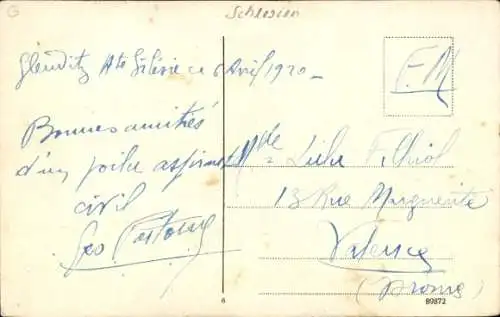 G
Schlesien
Hte Silésie ce 6 Avril 1920
F.M
Bonnes amitiés
d'un poilu aspirant
civil
Geo
Mlle Filhiol
13 Rue Marguerite
Valence
(Drome)
6
89872